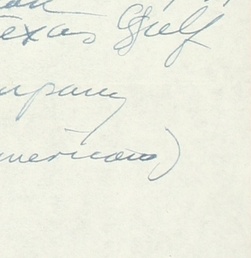 exas Gulf
mpany
mericans)